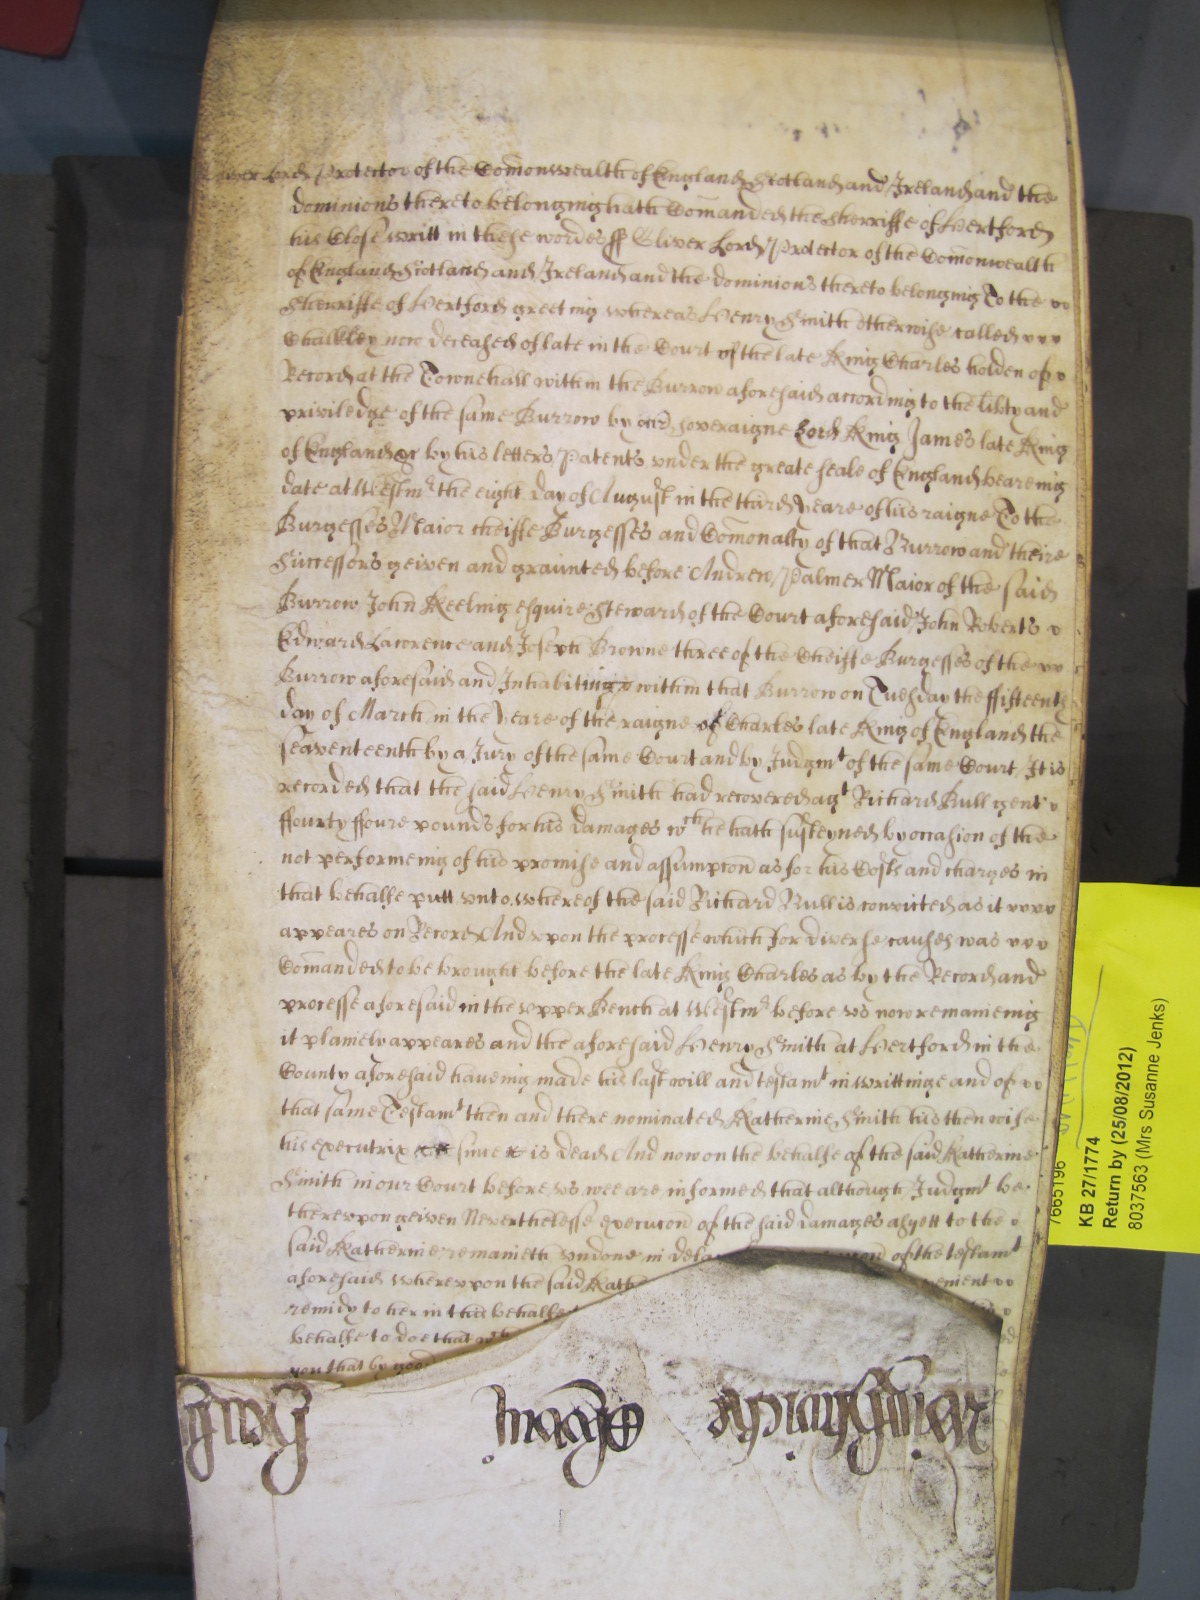 Oliver Lord Protector of the Comonwealth of England Scotland and Ireland and the
dominions thereto belonging hath Comanded the Sherriffe of Hertford
his Close writt in these wordes ss Oliver Lord Protector of the Comonwealth
of England Scotland and Ireland and the dominions thereto belonging To the
Sherriffe of Hertford greeting whereas Henry Smith otherwise called
Chalkley now deceased of late in the Court of the late King Charles holden of
Record at the Townehall within the Burrow aforesaid according to the libty and
priviledge of the same Burrow by our Soveraigne Lord King James late King
of England &c by his letters Patents under the greate seale of England beareing
date at Westmr the eight day of August in the third yeare of his raigne To the
Burgesses Maior cheiffe Burgesses and Comonalty of that Burrow and theire
Successors geiven and graunted before Andrew Palmer Maior of the said
Burrow John Keeling esquire Steward of the Court aforesaid John Roberts
Edward Lawrence and Joseph Browne three of the Cheiffe Burgesses of the
Burrow aforesaid and Inhabiting within that Burrow on Tuesday the ffifteenth
day of March in the yeare of the raigne of Charles late King of England the
seaventeenth by a Jury of the same Court and by Judgmt of the same Court It is
recorded that the said Henry Smith had recovered agt Richard Bull gent
ffourty ffoure pounds for his damages wch he hath susteyned by occasion of the
not performeing of his promise and assumpcon as for his Costs and charges in
that behalfe putt unto whereof the said Richard Bull is convicted as it
appeares on Record And upon the processe which for diverse causes was
Comanded to be brought before the late King Charles as by the Record and
processe aforesaid in the upper Bench at Westmr before us now remaineing
it plainely appeares and the aforesaid Henry Smith at Hertford in the
County aforesaid haveing made his last will and testamt in writtinge and of
that same Testamt then and there nominated Katherine Smith his then wife
his executrix since is dead And now on the behalfe of the said Katherine
Smith in our Court before us wee are informed that although Judgmt be
thereupon geiven Neverthelesse execucon of the said damages as yett to the
said Katherine remaineth undone in of the testamt
aforesaid Whereupon the said
remidy to her in this behalfe
behalfe to doe that
you that by good
KB 27/1774
Return by (25/08/2012)
8037563 (Mrs Susanne Jenks)
7665196